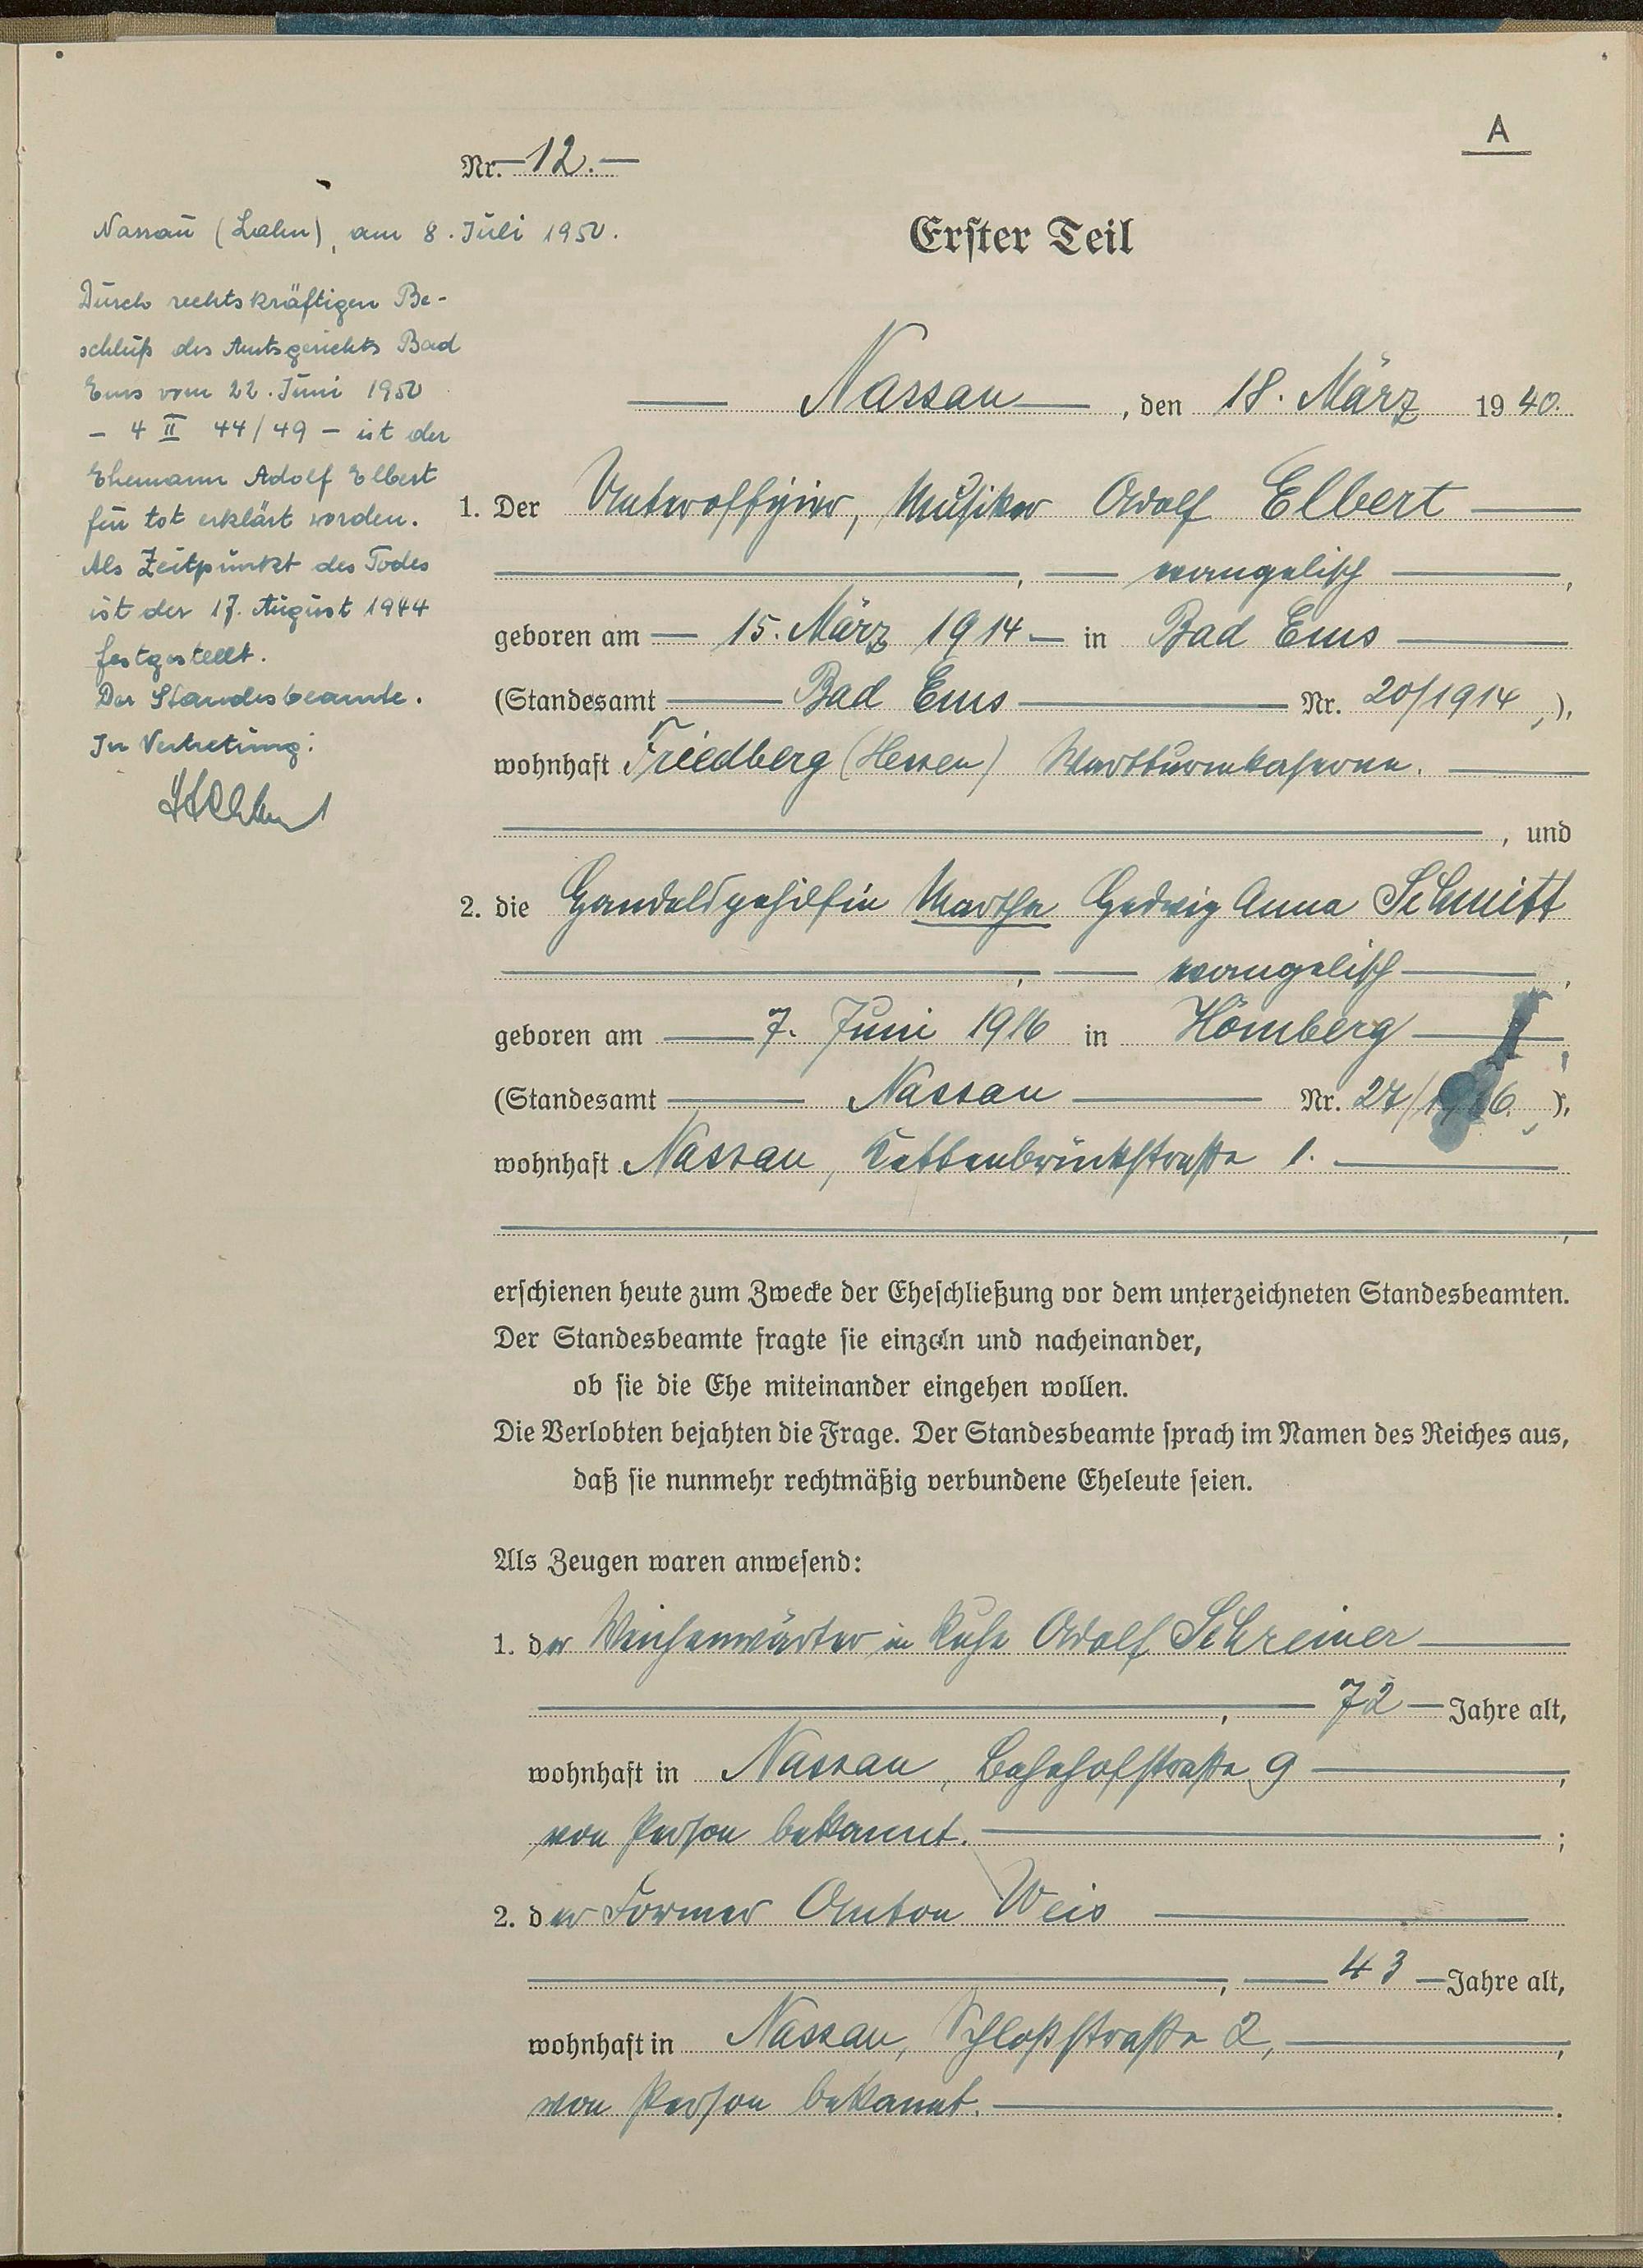 A
Nr. 12.
Nassau (Lahn), am 8. Juli 1950.
Durch rechtskräftigen Be-
schluß des Amtsgerichts Bad
Ems vom 22. Juni 1950
- 4 II 44/49 - ist der
Ehemann Adolf Elbert
für tot erklärt worden.
Als Zeitpunkt des Todes
ist der 17. August 1944
festgestellt.
Der Standesbeamte.
In Vertretung:
Erster Teil
Nassau, den 18. März 1940.
1. Der Unteroffizier, Musiker Adolf Elbert
, evangelisch,
geboren am 15. März 1914 in Bad Ems
(Standesamt Bad Ems Nr. 20/1914,),
wohnhaft Friedberg (Hessen) Wartturmkaserne.
, und
2. die Handelsgehilfin Martha Hedwig Anna Schmitt
, evangelisch,
geboren am 7. Juni 1916 in Hömberg,
(Standesamt Nassau Nr. 27/1916,),
wohnhaft Nassau, Kettenbrückstraße 1.
,
erschienen heute zum Zwecke der Eheschließung vor dem unterzeichneten Standesbeamten.
Der Standesbeamte fragte sie einzeln und nacheinander,
ob sie die Ehe miteinander eingehen wollen.
Die Verlobten bejahten die Frage. Der Standesbeamte sprach im Namen des Reiches aus,
daß sie nunmehr rechtmäßig verbundene Eheleute seien.
Als Zeugen waren anwesend:
1. der Weichenwärter in Ruhe Adolf Schreiner
, 72 Jahre alt,
wohnhaft in Nassau, Bahnhofstraße 9,
von Person bekannt.;
2. der Former Anton Weis
, 43 Jahre alt,
wohnhaft in Nassau, Schloßstraße 2,,
von Person bekannt..